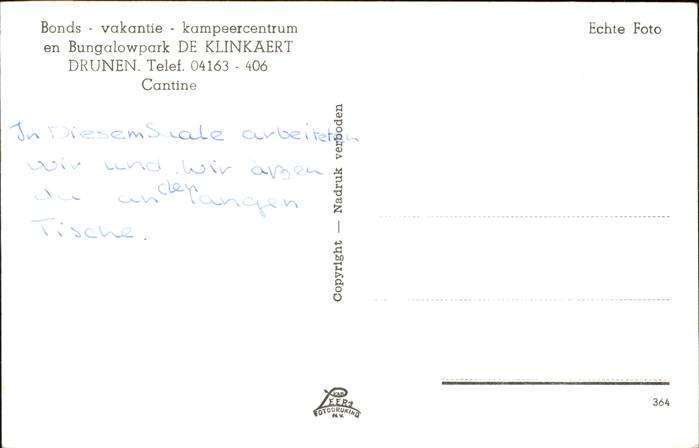 Bonds - vakantie - kampeercentrum
en Bungalowpark DE KLINKAERT
DRUNEN. Telef. 04163 - 406
Cantine
Echte Foto
In Diesem Saale arbeiteten
wir und wir aßen
an den langen
Tische.
Copyright — Nadruk verboden
VAN
LEER'S
FOTODRUKIND.
N.V.
364